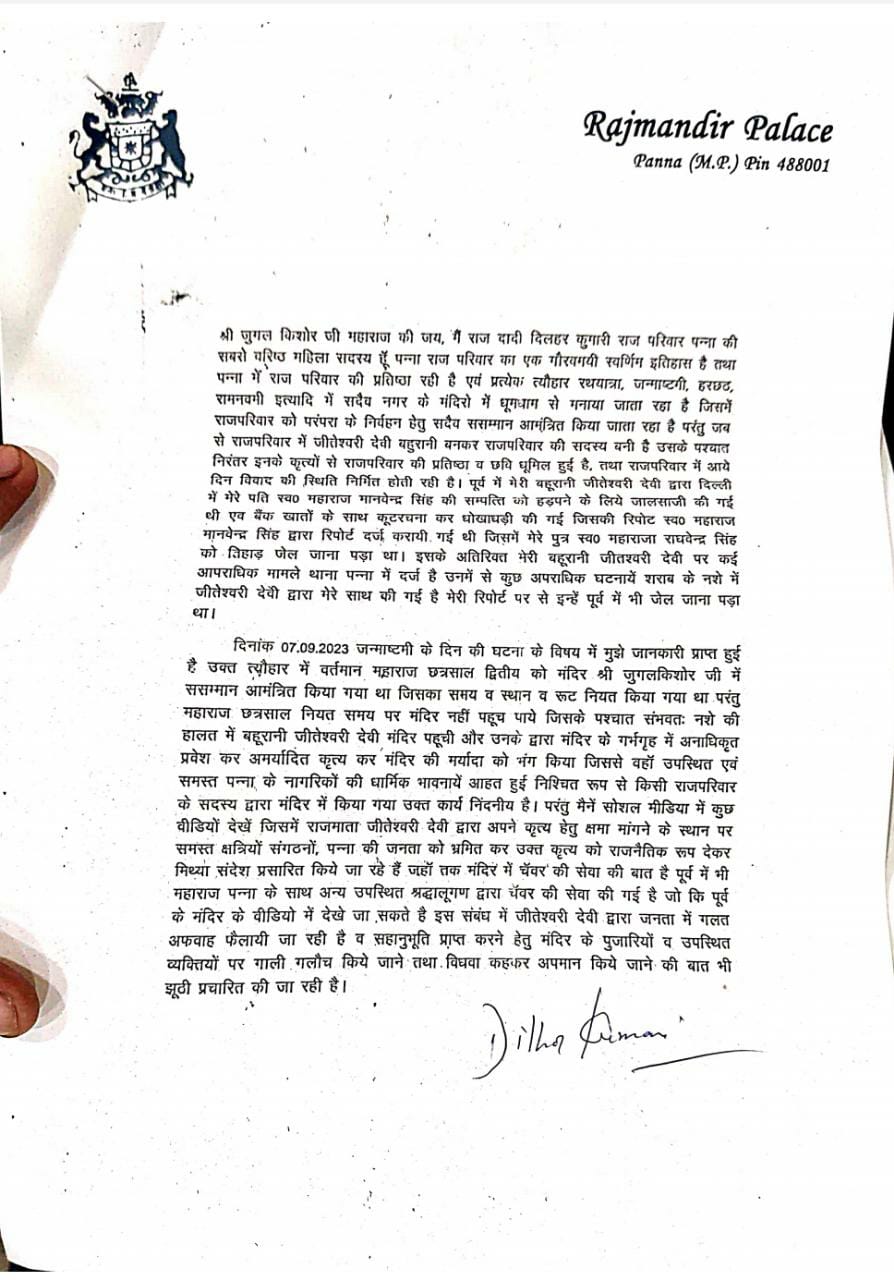 Rajmandir Palace
Panna (M.P.) Pin 488001
श्री जुगल किशोर जी महाराज की जय, मैं राज दादी दिलहर कुमारी राज परिवार पन्ना की
सबसे वरिष्ठ महिला सदस्य हूँ पन्ना राज परिवार का एक गौरवमयी स्वर्णिम इतिहास है तथा
पन्ना में राज परिवार की प्रतिष्ठा रही है एवं प्रत्येक त्यौहार रथयात्रा, जन्माष्टमी, हरछठ,
रामनवमी इत्यादि में सदैव नगर के मंदिरो में धूमधाम से मनाया जाता रहा है जिसमें
राजपरिवार को परंपरा के निर्वहन हेतु सदैव ससम्मान आमंत्रित किया जाता रहा है परंतु जब
से राजपरिवार में जीतेश्वरी देवी बहुरानी बनकर राजपरिवार की सदस्य बनी है उसके पश्चात
निरंतर इनके कृत्यों से राजपरिवार की प्रतिष्ठा व छवि धूमिल हुई है, तथा राजपरिवार में आये
दिन विवाद की स्थिति निर्मित होती रही है। पूर्व में मेरी बहूरानी जीतेश्वरी देवी द्वारा दिल्ली
में मेरे पति स्व० महाराज मानवेन्द्र सिंह की सम्पत्ति को हड़पने के लिये जालसाजी की गई
थी एव बैंक खातों के साथ कूटरचना कर धोखाधड़ी की गई जिसकी रिपोट स्व० महाराज
मानवेन्द्र सिंह द्वारा रिपोर्ट दर्ज करायी गई थी जिसमें मेरे पुत्र स्व० महाराजा राघवेन्द्र सिंह
को तिहाड़ जेल जाना पड़ा था। इसके अतिरिक्त मेरी बहूरानी जीतश्वरी देवी पर कई
आपराधिक मामले थाना पन्ना में दर्ज है उनमें से कुछ अपराधिक घटनायें शराब के नशे में
जीतेश्वरी देवी द्वारा मेरे साथ की गई है मेरी रिपोर्ट पर से इन्हें पूर्व में भी जेल जाना पड़ा
था।
दिनांक 07.09.2023 जन्माष्टमी के दिन की घटना के विषय में मुझे जानकारी प्राप्त हुई
है उक्त त्यौहार में वर्तमान महाराज छत्रसाल द्वितीय को मंदिर श्री जुगलकिशोर जी में
ससम्मान आमंत्रित किया गया था जिसका समय व स्थान व रूट नियत किया गया था परंतु
महाराज छत्रसाल नियत समय पर मंदिर नहीं पहूच पाये जिसके पश्चात संभवतः नशे की
हालत में बहूरानी जीतेश्वरी देवी मंदिर पहूची और उनके द्वारा मंदिर के गर्भगृह में अनाधिकृत
प्रवेश कर अमर्यादित कृत्य कर मंदिर की मर्यादा को भंग किया जिससे वहॉ उपस्थित एवं
समस्त पन्ना के नागरिकों की धार्मिक भावनायें आहत हुई निश्चित रूप से किसी राजपरिवार
के सदस्य द्वारा मंदिर में किया गया उक्त कार्य निंदनीय है। परंतु मैनें सोशल मीडिया में कुछ
वीडियों देखें जिसमें राजमाता जीतेश्वरी देवी द्वारा अपने कृत्य हेतु क्षमा मांगने के स्थान पर
समस्त क्षत्रियों संगठनों, पन्ना की जनता को भ्रमित कर उक्त कृत्य को राजनैतिक रूप देकर
मिथ्या संदेश प्रसारित किये जा रहे हैं जहॉ तक मंदिर में चॅवर की सेवा की बात है पूर्व में भी
महाराज पन्ना के साथ अन्य उपस्थित श्रद्धालूगण द्वारा चॅवर की सेवा की गई है जो कि पूर्व
के मंदिर के वीडियो में देखे जा सकते है इस संबंध में जीतेश्वरी देवी द्वारा जनता में गलत
अफवाह फैलायी जा रही है व सहानुभूति प्राप्त करने हेतु मंदिर के पुजारियों व उपस्थित
व्यक्तियों पर गाली गलौच किये जाने तथा विधवा कहकर अपमान किये जाने की बात भी
झूठी प्रचारित की जा रही है।
Dilhar Kumari